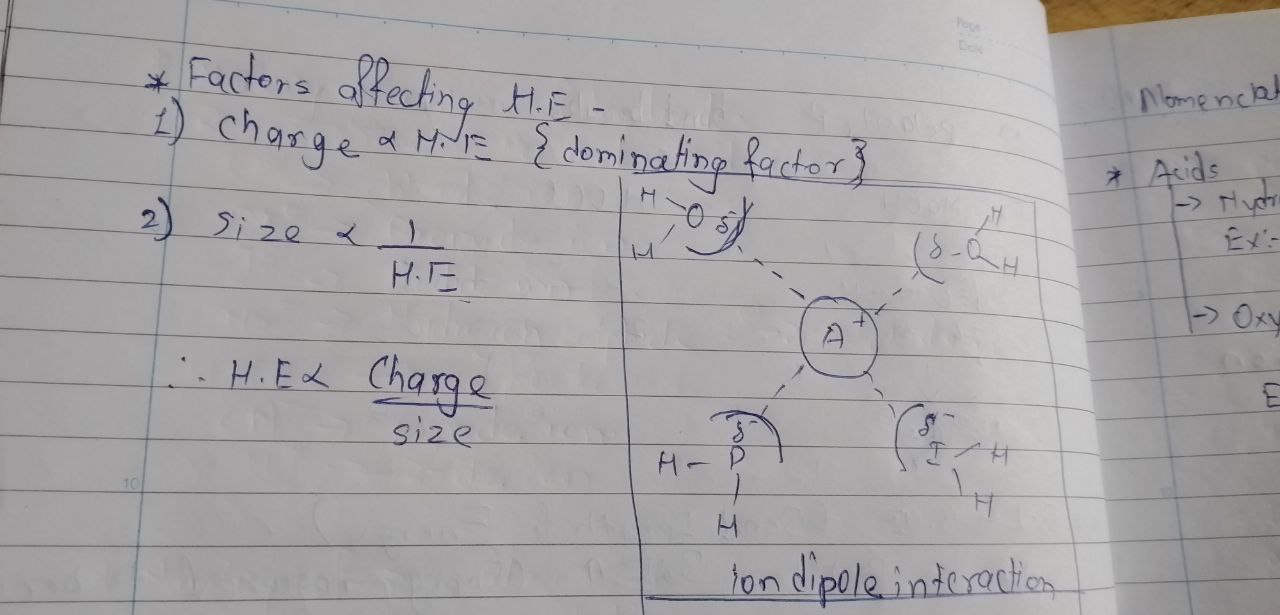 Page:
Date:
* Factors affecting H.E -
1) Charge ∝ H.E {dominating factor}
2) Size ∝ 1
H.E
∴ H.E ∝ Charge
size
H
O δ-
H
H
δ- O
H
A+
δ-
H - P
H
δ-
I - H
H
ion dipole interaction
10
Nomenclat
* Acids
→ Hydr
Ex:-
→ Oxy
E